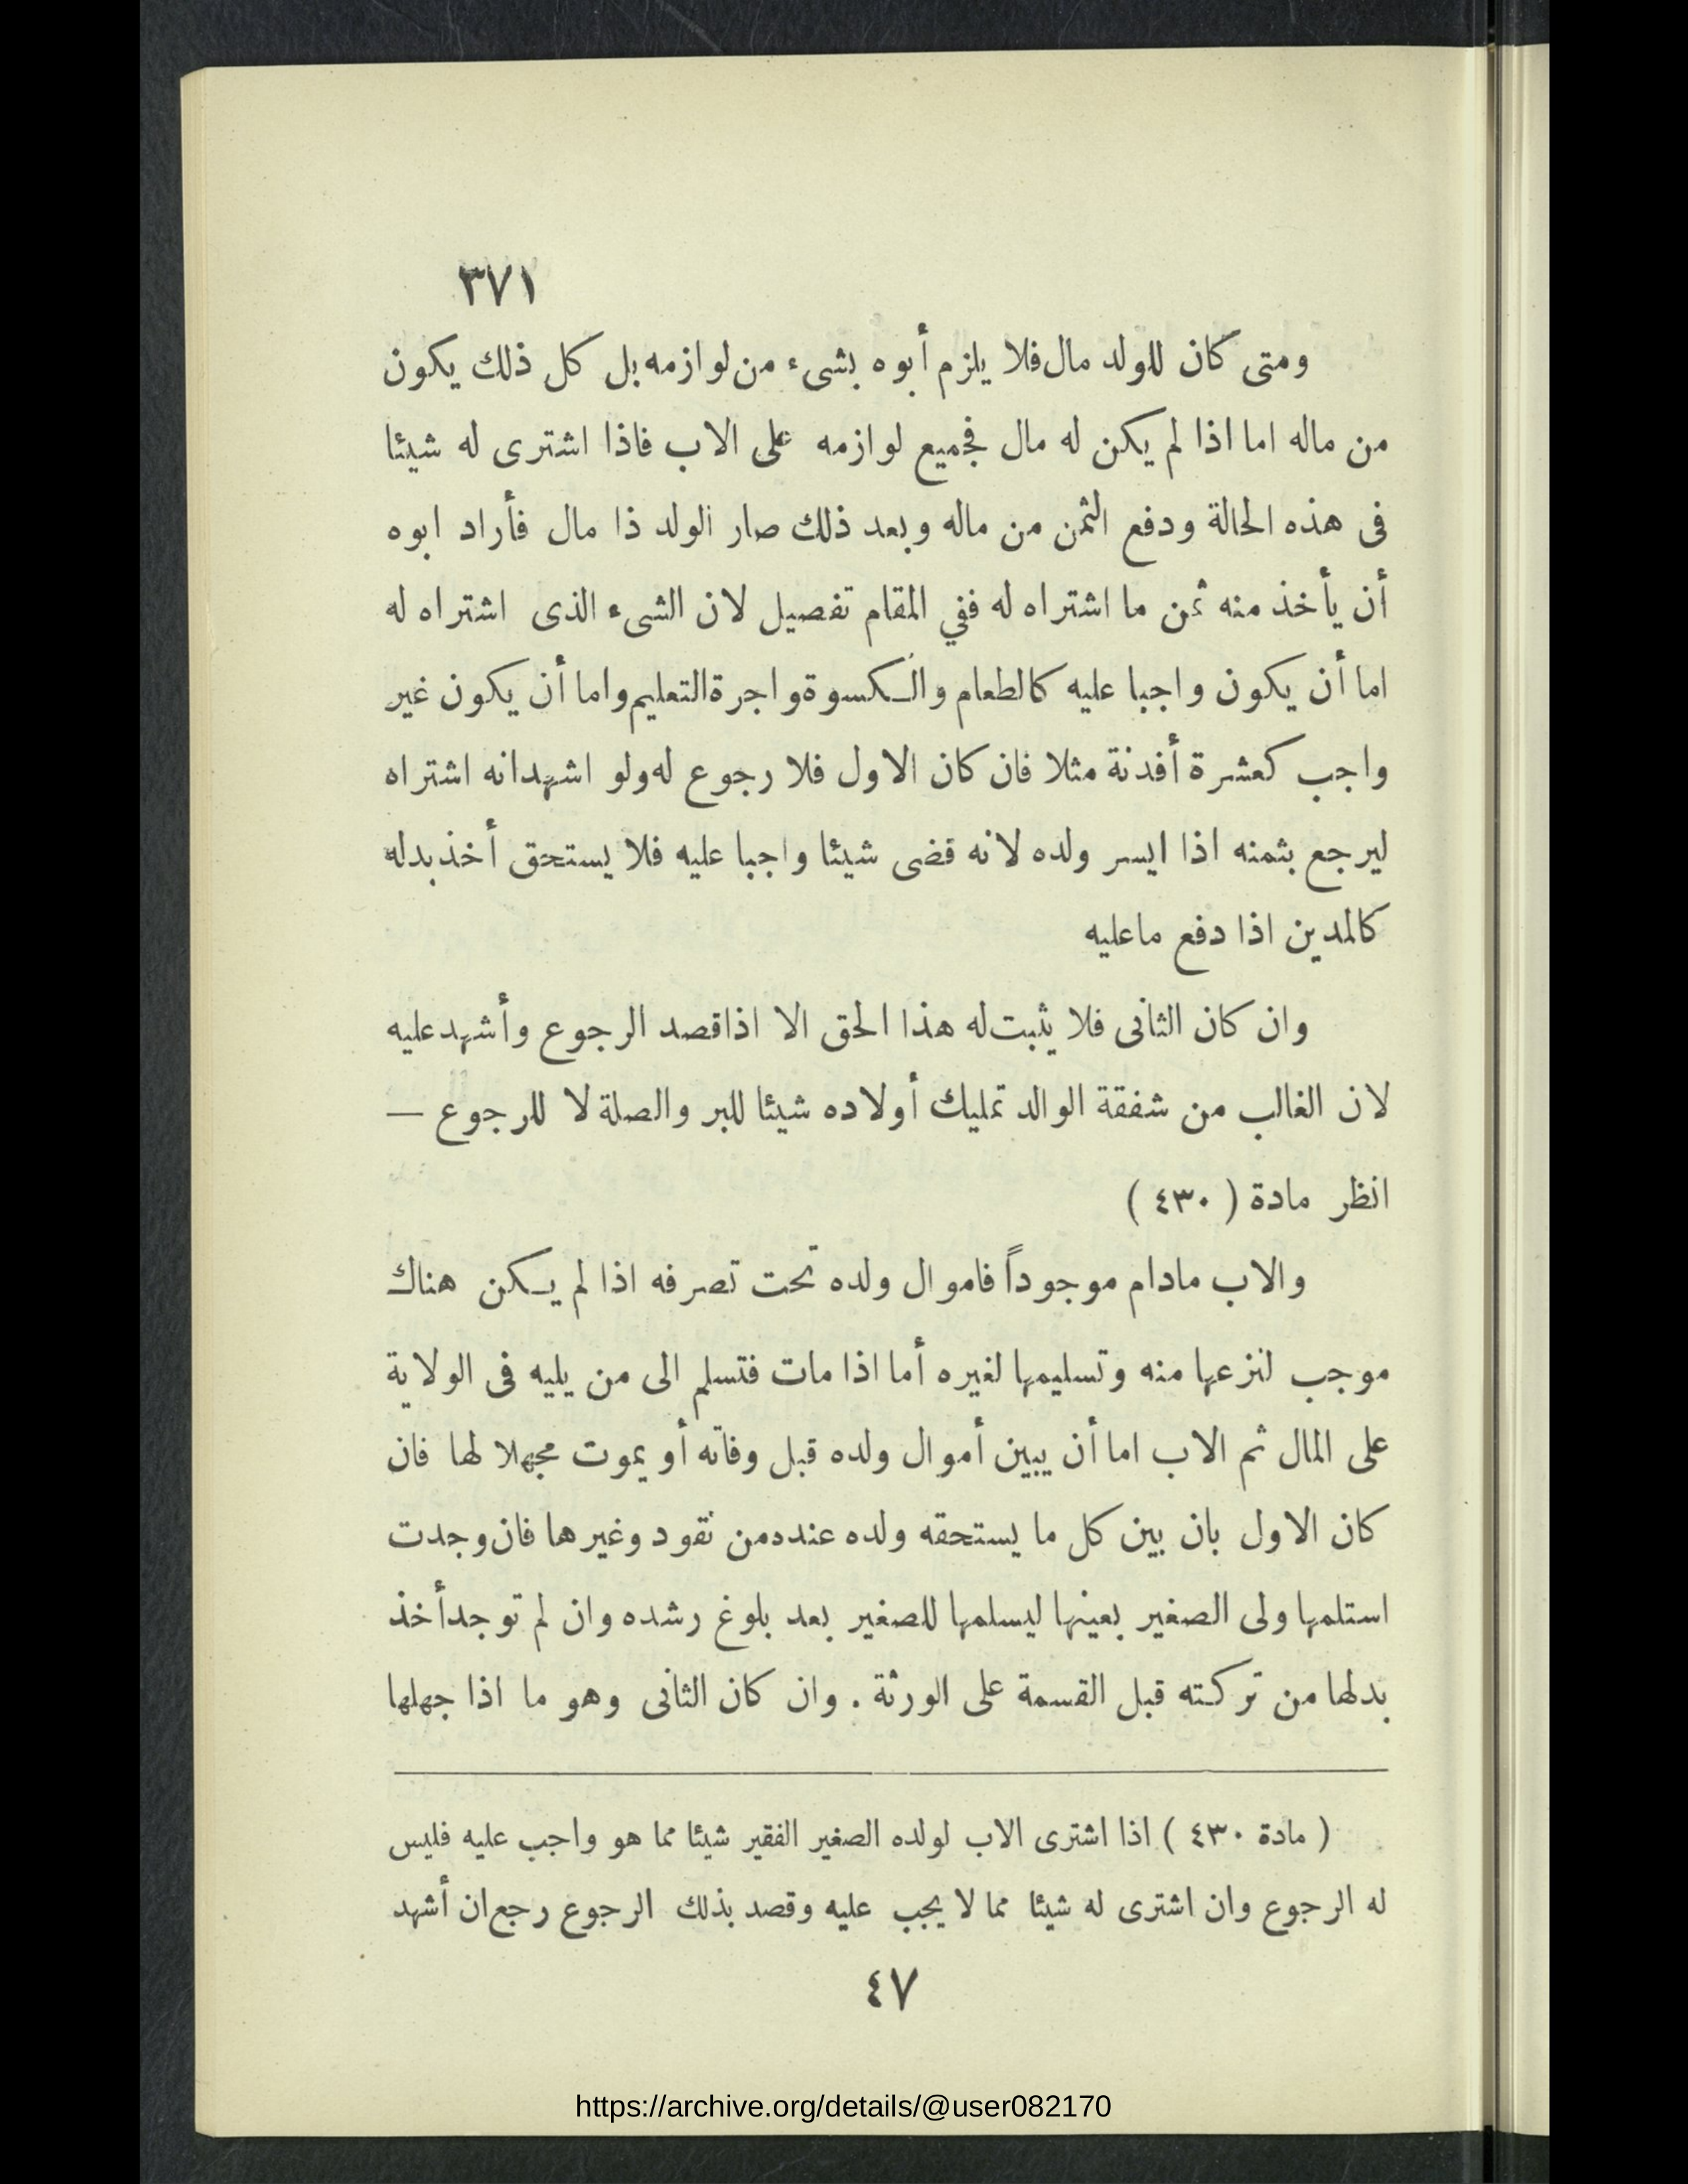 ٣٧١
ومتى كان للولد مال فلا يلزم أبوه بشىء من لوازمه بل كل ذلك يكون
من ماله اما اذا لم يكن له مال فجميع لوازمه على الاب فاذا اشترى له شيئا
فى هذه الحالة ودفع الثمن من ماله وبعد ذلك صار الولد ذا مال فأراد ابوه
أن يأخذ منه ثمن ما اشتراه له ففي المقام تفصيل لان الشىء الذى اشتراه له
اما أن يكون واجبا عليه كالطعام والكسوة واجرة التعليم واما أن يكون غير
واجب كعشرة أفدنة مثلا فان كان الاول فلا رجوع له ولو اشهد انه اشتراه
ليرجع بثمنه اذا ايسر ولده لانه قضى شيئا واجبا عليه فلا يستحق أخذ بدله
كالمدين اذا دفع ماعليه
وان كان الثانى فلا يثبت له هذا الحق الا اذا قصد الرجوع وأشهد عليه
لان الغالب من شفقة الوالد تمليك أولاده شيئا للبر والصلة لا للرجوع —
انظر مادة ( ٤٣٠ )
والاب مادام موجوداً فاموال ولده تحت تصرفه اذا لم يكن هناك
موجب لنزعها منه وتسليمها لغيره أما اذا مات فتسلم الى من يليه فى الولاية
على المال ثم الاب اما أن يبين أموال ولده قبل وفاته أو يموت مجهلا لها فان
كان الاول بان بين كل ما يستحقه ولده عنده من نقود وغيرها فان وجدت
استلمها ولى الصغير بعينها ليسلمها للصغير بعد بلوغ رشده وان لم توجد أخذ
بدلها من تركته قبل القسمة على الورثة . وان كان الثانى وهو ما اذا جهلها
( مادة ٤٣٠ ) اذا اشترى الاب لولده الصغير الفقير شيئا مما هو واجب عليه فليس
له الرجوع وان اشترى له شيئا مما لا يجب عليه وقصد بذلك الرجوع رجع ان أشهد
٤٧
https://archive.org/details/@user082170